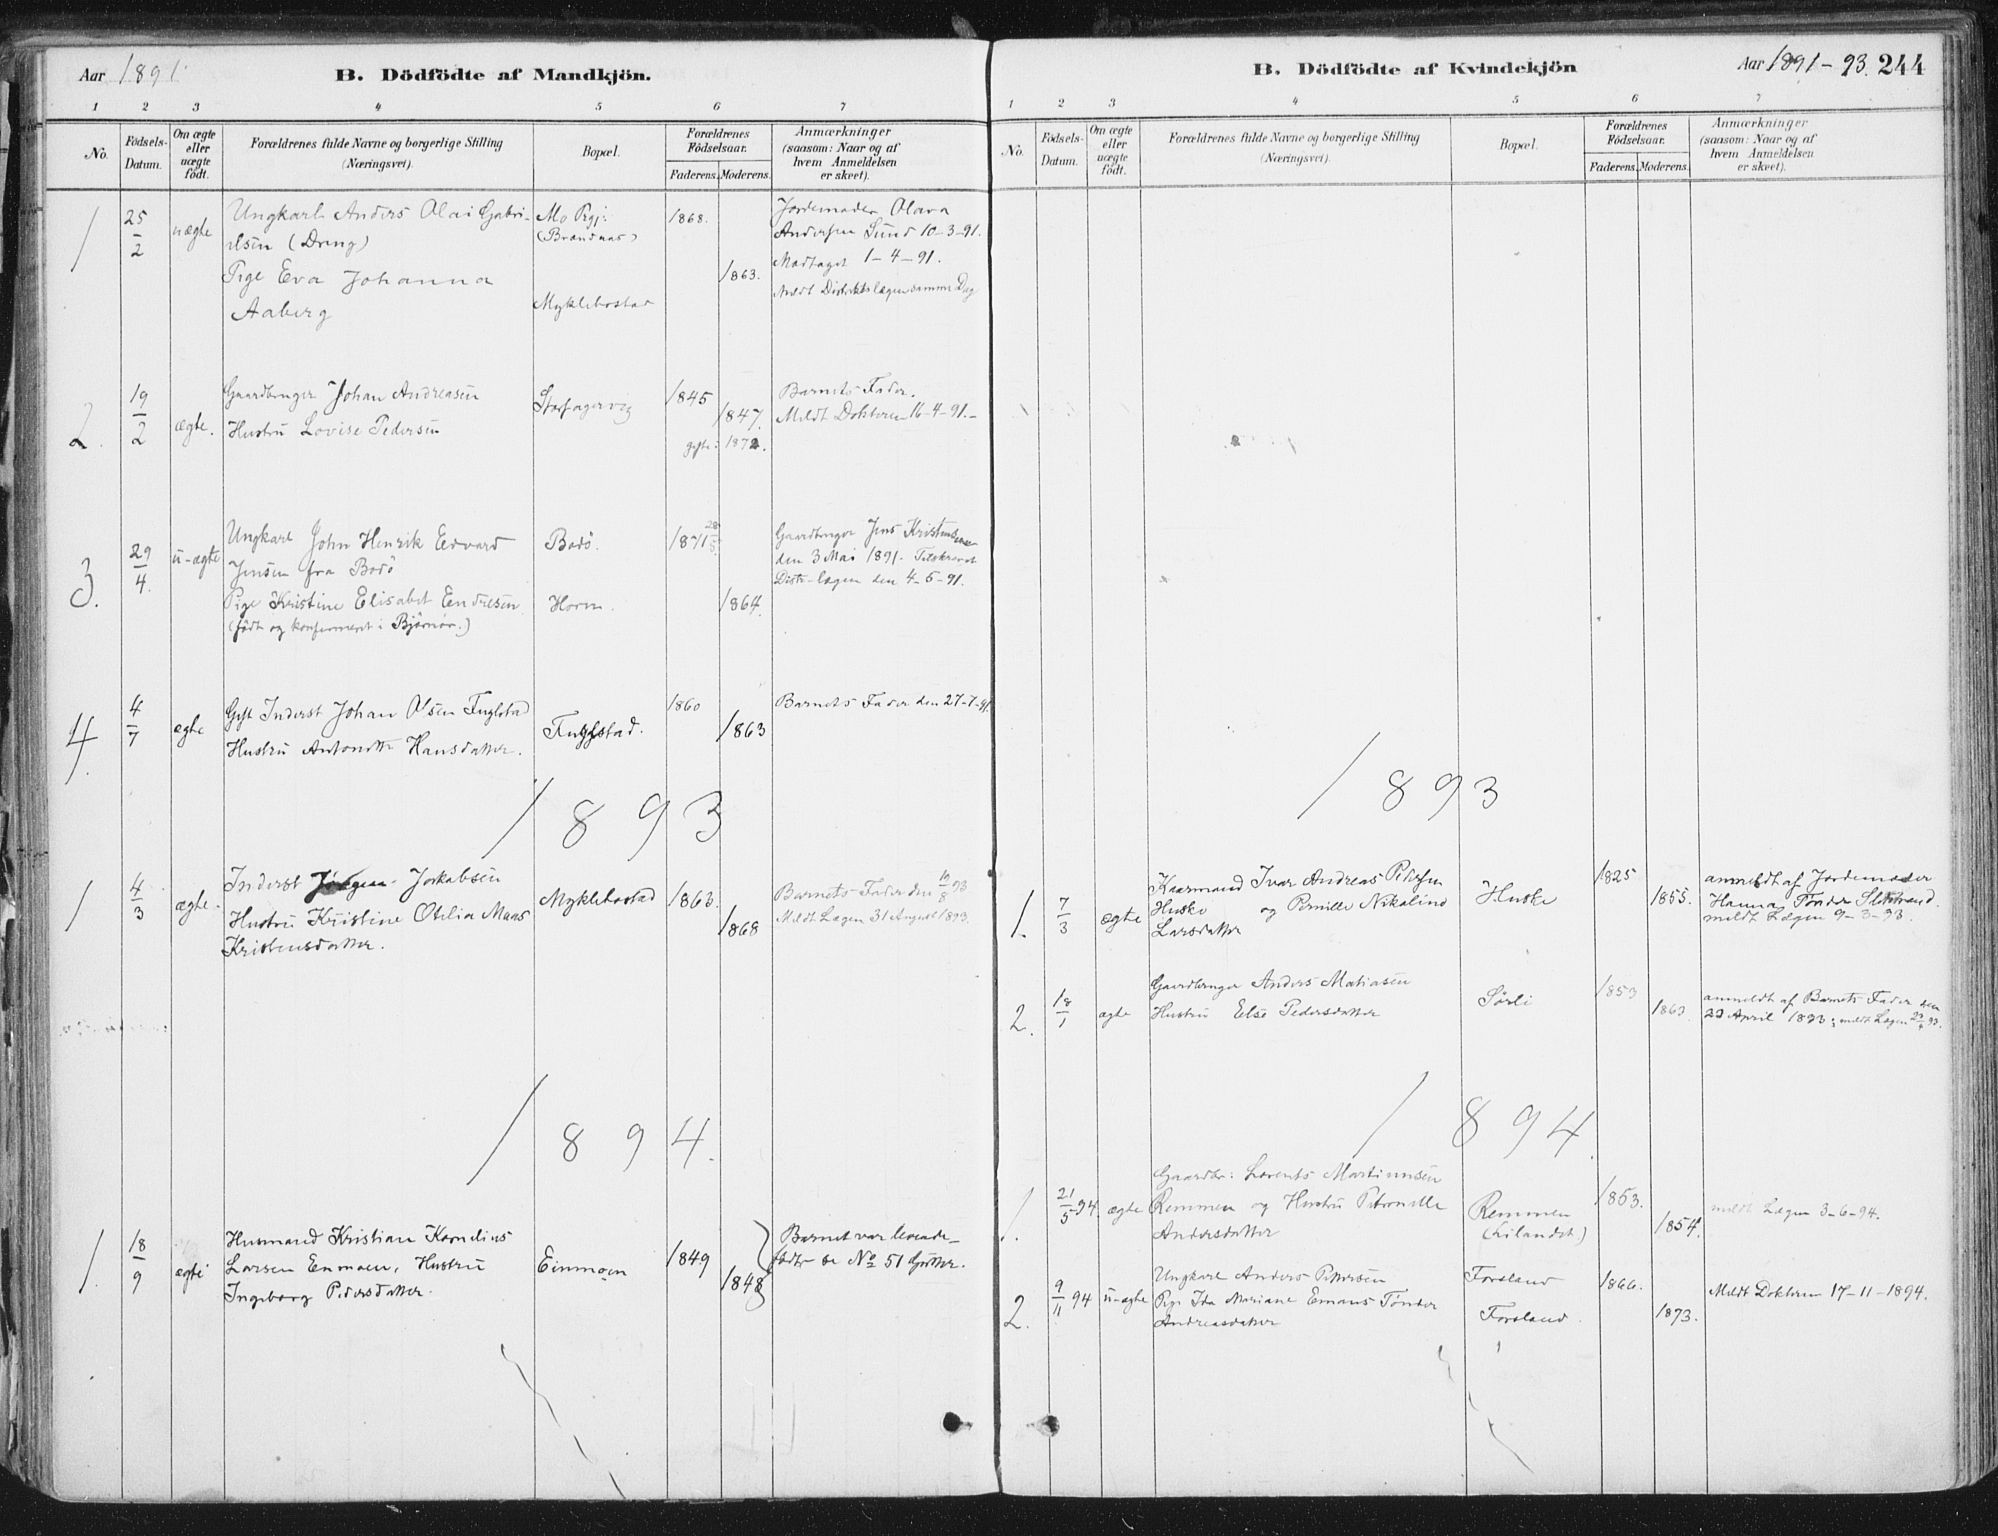 Aar 1891.
B. Dödfödte af Mandkjön.
1 2 3 4 5 6 7
No.
Födsels-
Datum.
Om ægte
eller
uægte
födt.
Forældrenes fulde Navne og borgerlige Stilling
(Næringsvei).
Bopæl.
Forældrenes
Födselsaar.
Faderens. Moderens.
Anmærkninger
(saasom: Naar og af
hvem Anmeldelsen
er skeet).
1
25/2
uægte
Ungkarl Anders Olai Gabri-
elsen (Dreng)
Pige Eva Johanna
Aaberg
Mo Prgj:
(Brandnæs)
Myklebostad
1868.
1863.
Jordemoder Olava
Andersen Sund 10-3-91.
Modtaget 1-4-91.
Meldt Distriktslægen samme Dag
2.
19/2
ægte.
Gaardbruger Johan Andreasen
Hustru Lovise Pedersen
Storfagervig
1845
1847.
gifte: 1872.
Barnets Fader.
Meldt Doktoren 16-4-91.-
3.
29/4.
u-ægte
Ungkarl John Henrik Edvard
Jensen fra Bodö
Pige Kristine Elisabet Endresen
(födt og konfirmeret i Bjørnør.)
Bodö.
Horn.
1871
1864.
Gaardbruger Jens Kristensen
den 3 Mai 1891. Tilskrevet
Distr-lægen den 4-5-91.
4.
4/7
ægte
Gift Inderst Johan Olsen Fuglstad
Hustru Antonette Hansdatter.
Fuglstad.
1860
1863
Barnets Fader den 27-7-91.
1893
1
4/3
ægte.
Inderst Jørgen Jakobsen
Hustru Kristine Otelia Maas
Kristensdatter.
Myklebostad
1863.
1868
Barnets Fader den 19/8 93
Meldt Lægen 31 August 1893.
1894.
1.
18/9
ægte
Husmand Kristian Kornelius
Larsen Enmoen, Hustru
Ingeborg Pedersdatter.
Einmoen
1849
1848
Barnet var levende-
födt se No 51 Gutter.
B. Dödfödte af Kvindekjön
Aar 1891-93. 244
1 2 3 4 5 6 7
No.
Födsels-
Datum.
Om ægte
eller
uægte
födt.
Forældrenes fulde Navne og borgerlige Stilling
(Næringsvei).
Bopæl.
Forældrenes
Födselsaar.
Faderens. Moderens.
Anmærkninger
(saasom: Naar og af
hvem Anmeldelsen
er skeet).
1893
1.
7/3
ægte
Kaarmand Ivar Andreas Pedersen
Huske og Pernille Nikoline
Larsdatter
Huske
1825
1855.
anmeldt af Jordemoder
Hanna Tönder Sletstrand.
meldt Lægen 9-3-93.
2.
18/1
ægte
Gaardbruger Anders Matiasen
Hustru Else Pedersdatter
Sörli
1853
1863.
anmeldt af Barnets Fader den
23 April 1893; meldt Lægen 23/4 93.
1894.
1.
21/5-94.
ægte
Gaardbr: Lorents Martinusen
Remmen og Hustru Petronille
Andersdatter
Remmen
1853.
1854.
meldt Lægen 3-6-94.
2.
9/11 94
u-ægte
Ungkarl Anders Pettersen
Pige Ida Mariane Emans Tönder
Andreasdatter
Forsland
Forsland.
1866.
1873.
Meldt Doktoren 17-11-1894.